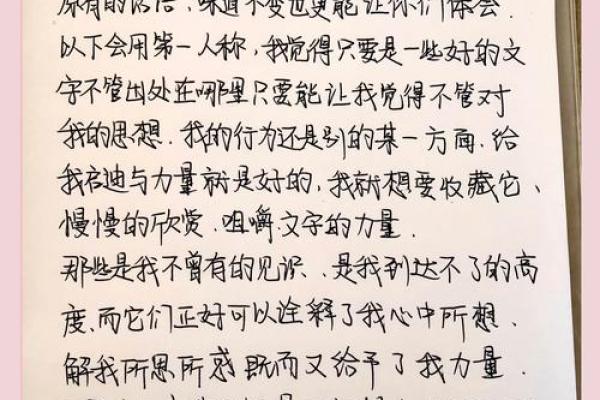 原有的语法，味道不变也更能让你们体会．
以下会用第一人称，我觉得只要是一些好的文
字不管出处在哪里只要能让我觉得不管对
我的思想．我的行为还是别的某一方面．给
我启迪与力量就是好的，我就想要收藏它、
慢慢的欣赏．咀嚼．文字的力量．
那些是我不曾有的见识、是我到达不了的高
度、而它们正好可以诠释了我心中所想、
解我所思所惑既而又给予了我力量．